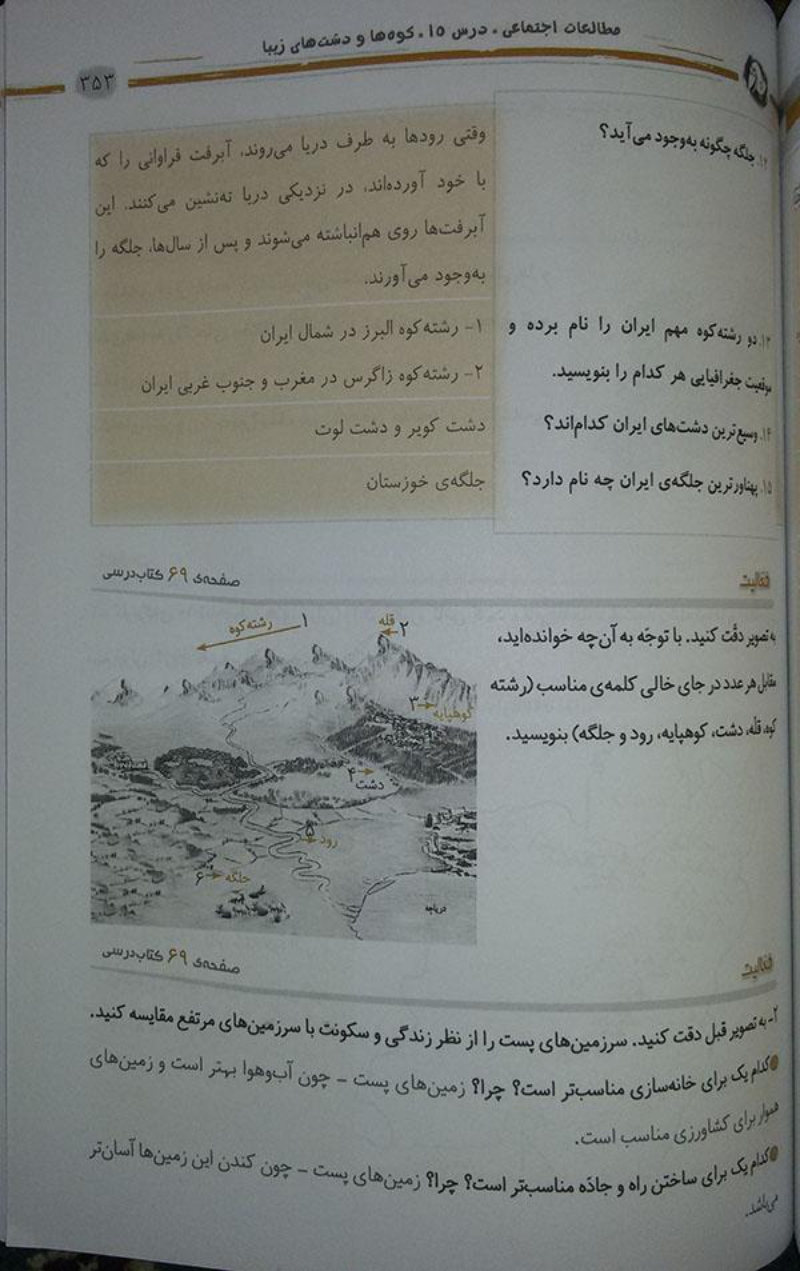 مطالعات اجتماعی . درس ۱۵ . کوه‌ها و دشت‌های زیبا
۳۵۳
۱۲. جلگه چگونه به‌وجود می‌آید؟
وقتی رودها به طرف دریا می‌روند، آبرفت فراوانی را که
با خود آورده‌اند، در نزدیکی دریا ته‌نشین می‌کنند. این
آبرفت‌ها روی هم‌انباشته می‌شوند و پس از سال‌ها، جلگه را
به‌وجود می‌آورند.
۱۳. دو رشته‌کوه مهم ایران را نام برده و
موقعیت جغرافیایی هر کدام را بنویسید.
۱- رشته‌کوه البرز در شمال ایران
۲- رشته‌کوه زاگرس در مغرب و جنوب غربی ایران
۱۴. وسیع‌ترین دشت‌های ایران کدام‌اند؟
دشت کویر و دشت لوت
۱۵. پهناورترین جلگه‌ی ایران چه نام دارد؟
جلگه‌ی خوزستان
فعالیت
صفحه‌ی ۶۹ کتاب‌درسی
به تصویر دقّت کنید. با توجّه به آن‌چه خوانده‌اید،
مقابل هر عدد در جای خالی کلمه‌ی مناسب (رشته
کوه، قلّه، دشت، کوهپایه، رود و جلگه) بنویسید.
۱ رشته‌کوه
۲ قله
۳ کوهپایه
۴ دشت
۵ رود
۶ جلگه
دریاچه
فعالیت
صفحه‌ی ۶۹ کتاب‌درسی
۲- به تصویر قبل دقت کنید. سرزمین‌های پست را از نظر زندگی و سکونت با سرزمین‌های مرتفع مقایسه کنید.
●کدام یک برای خانه‌سازی مناسب‌تر است؟ چرا؟ زمین‌های پست – چون آب‌وهوا بهتر است و زمین‌های
هموار برای کشاورزی مناسب است.
●کدام یک برای ساختن راه و جادّه مناسب‌تر است؟ چرا؟ زمین‌های پست – چون کندن این زمین‌ها آسان‌تر
می‌باشد.